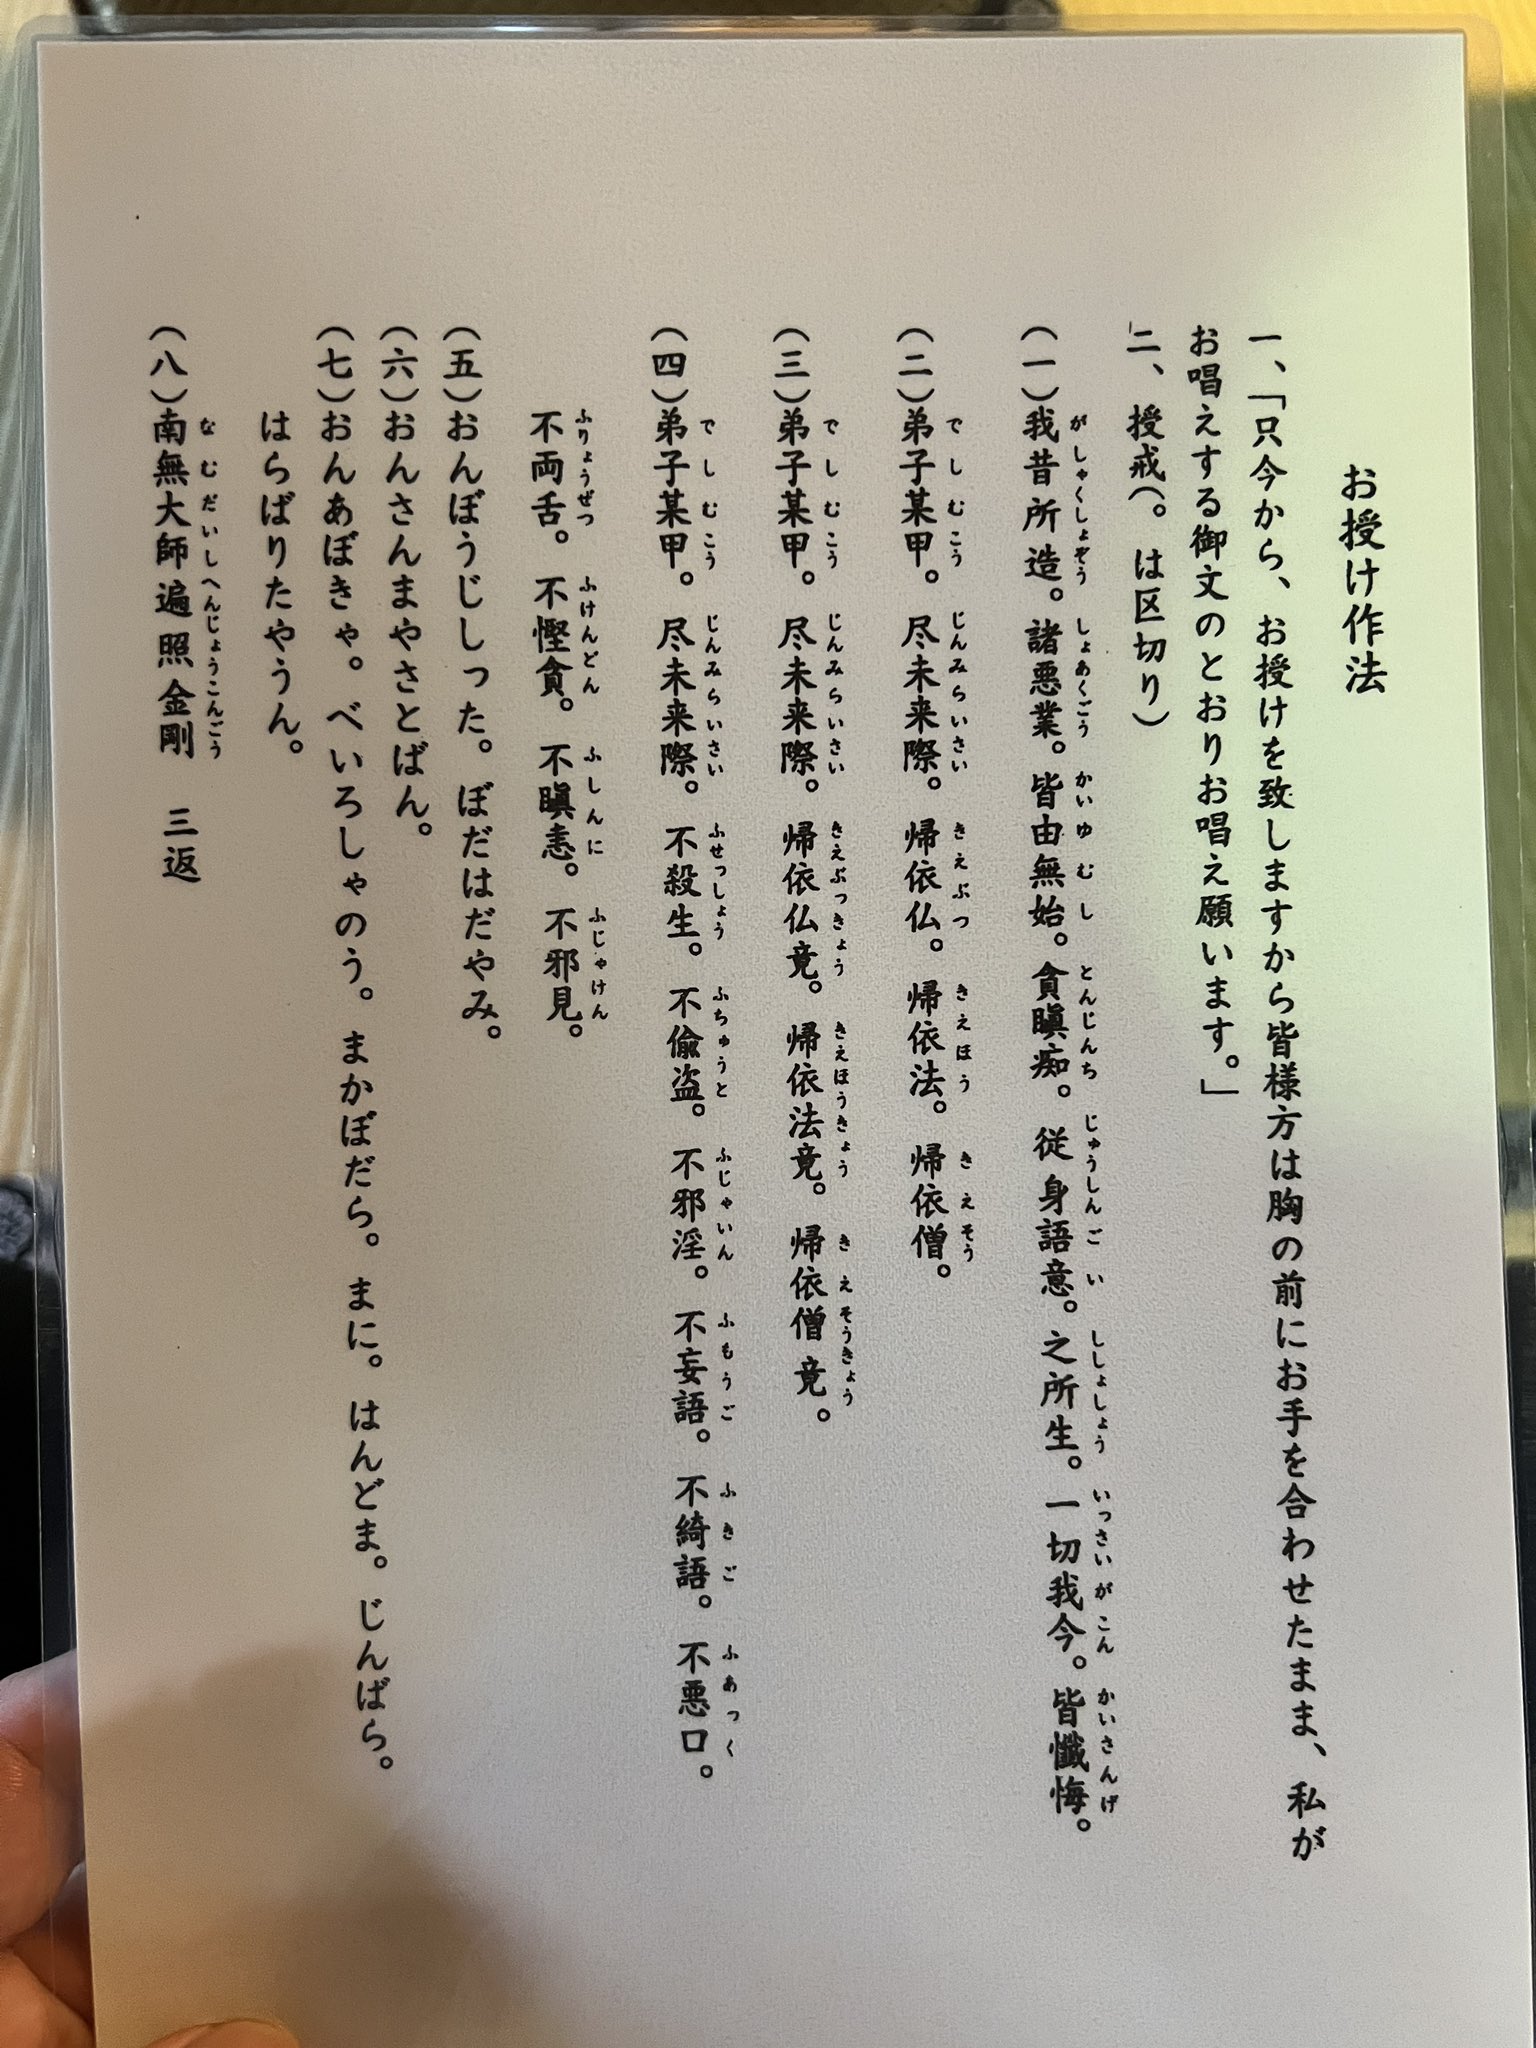 お授け作法
一、「只今から、お授けを致しますから皆様方は胸の前にお手を合わせたまま、私が
お唱えする御文のとおりお唱え願います。」
二、授戒(。は区切り)
(一)我昔所造。諸悪業。皆由無始。貪瞋痴。従身語意。之所生。一切我今。皆懺悔。
がしゃくしょぞう しょあくごう かいゆむし とんじんち じゅうしんごい ししょしょう いっさいがこん かいさんげ
(二)弟子某甲。尽未来際。帰依仏。帰依法。帰依僧。
でしむこう じんみらいさい きえぶつ きえほう きえそう
(三)弟子某甲。尽未来際。帰依仏竟。帰依法竟。帰依僧竟。
でしむこう じんみらいさい きえぶっきょう きえほうきょう きえそうきょう
(四)弟子某甲。尽未来際。不殺生。不偸盗。不邪淫。不妄語。不綺語。不悪口。
でしむこう じんみらいさい ふせっしょう ふちゅうと ふじゃいん ふもうご ふきご ふあっく
不両舌。不慳貪。不瞋恚。不邪見。
ふりょうぜつ ふけんどん ふしんに ふじゃけん
(五)おんぼうじしった。ぼだはだやみ。
(六)おんさんまやさとばん。
(七)おんあぼきゃ。べいろしゃのう。まかぼだら。まに。はんどま。じんばら。
はらばりたやうん。
(八)南無大師遍照金剛 三返
なむだいしへんじょうこんごう